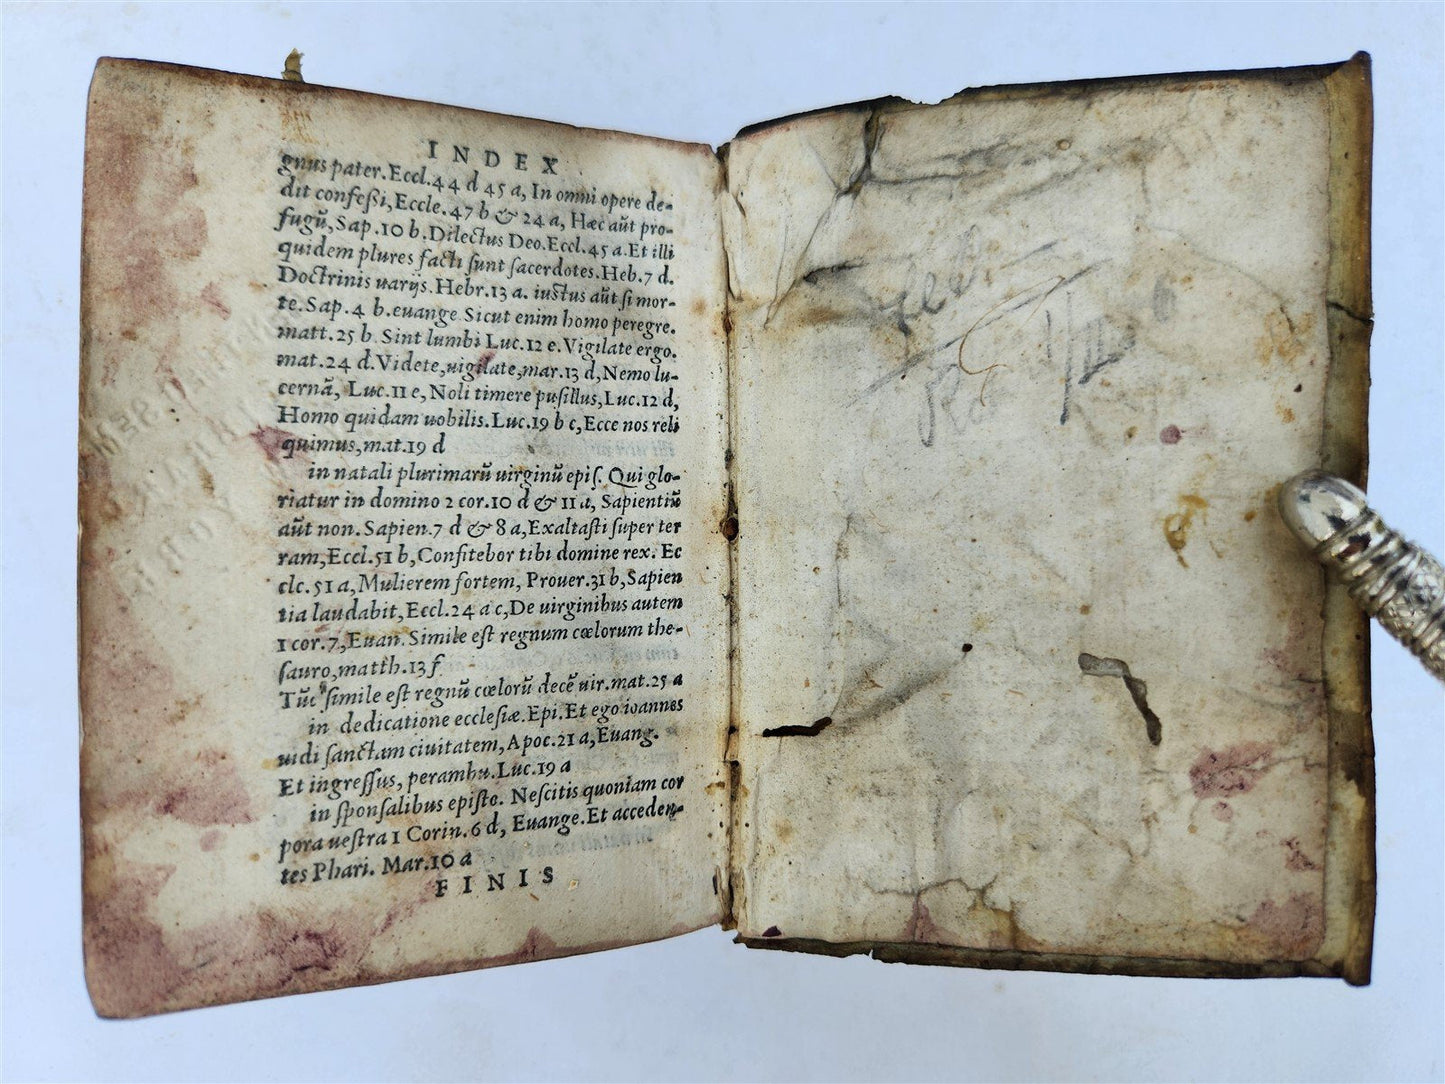 INDEX
gnus pater. Eccl. 44 d 45 a, In omni opere de-
dit confessi, Eccle. 47 b & 24 a, Hæc aūt pro-
fugū, Sap. 10 b. Dilectus Deo. Eccl. 45 a. Et illi
quidem plures facti sunt sacerdotes. Heb. 7 d.
Doctrinis uarijs. Hebr. 13 a. iustus aūt si mor-
te. Sap. 4 b. euange Sicut enim homo peregre.
matt. 25 b Sint lumbi Luc. 12 e. Vigilate ergo.
mat. 24 d. Videte, uigilate, mar. 13 d, Nemo lu-
cernā, Luc. 11 e, Noli timere pusillus, Luc. 12 d,
Homo quidam nobilis. Luc. 19 b c, Ecce nos reli
quimus, mat. 19 d
in natali plurimarū uirginū epis. Qui glo-
riatur in domino 2 cor. 10 d & 11 a, Sapientiū
aūt non. Sapien. 7 d & 8 a, Exaltasti super ter
ram, Eccl. 51 b, Confitebor tibi domine rex. Ec
clc. 51 a, Mulierem fortem, Prouer. 31 b, Sapien
tia laudabit, Eccl. 24 a c, De uirginibus autem
1 cor. 7, Euan. Simile est regnum cœlorum the-
sauro, matth. 13 f
Tūc simile est regnū cœlorū decē uir. mat. 25 a
in dedicatione ecclesiæ. Epi. Et ego ioannes
uidi sanctam ciuitatem, Apoc. 21 a, Euang.
Et ingressus, perambu. Luc. 19 a
in sponsalibus episto. Nescitis quoniam cor
pora uestra 1 Corin. 6 d, Euange. Et acceden-
tes Phari. Mar. 10 a
FINIS